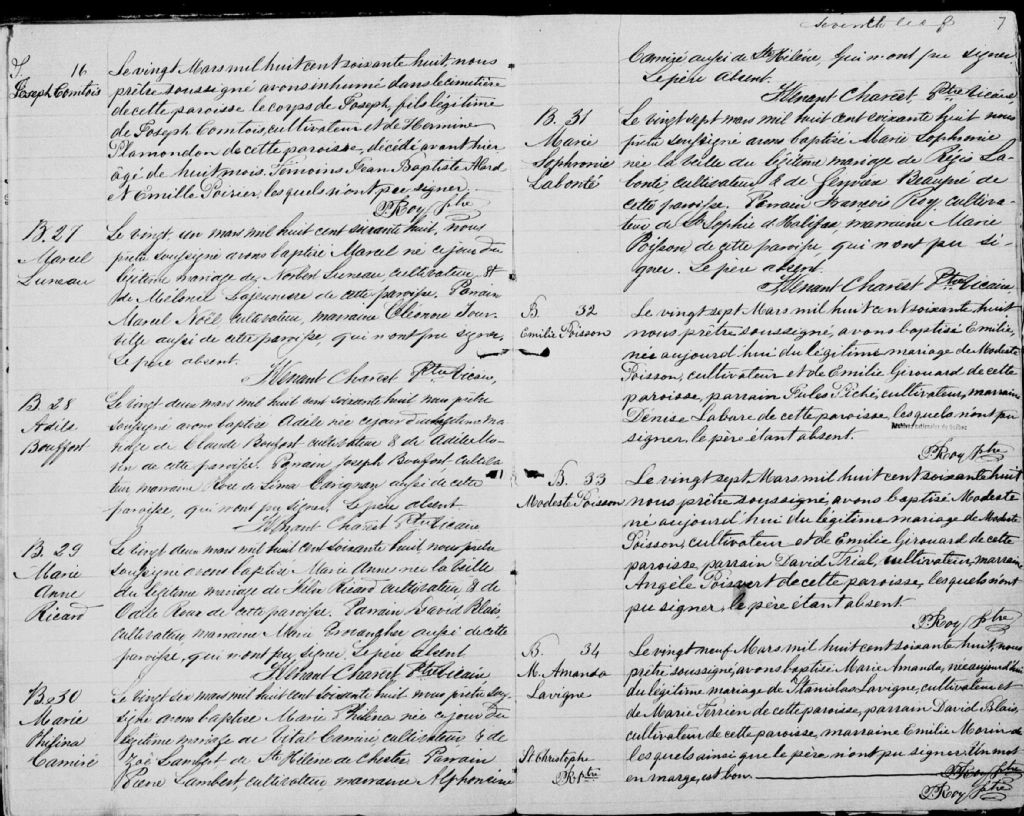 7
S. 16
Joseph Comtois
Le vingt Mars mil huit cent soixante huit, nous
prêtre soussigné avons inhumé dans le cimetière
de cette paroisse le corps de Joseph, fils légitime
de Joseph Comtois, cultivateur et de Hermine
Plamondon de cette paroisse, décédé avant hier
agé de huit mois. Témoins Jean Baptiste Allard
et Emille Poirier, lesquels n'ont pu signer.
P. Roy ptre
B. 27
Marcel
Luneau
Le vingt un mars mil huit cent soixante huit, nous
prêtre soussigné avons baptisé Marcel né ce jour du
légitime mariage de Norbert Luneau cultivateur et
de Lajeunesse de cette paroisse. Parrain
Marcel Noël, cultivateur, marraine Eléonore
aussi de cette paroisse, qui n'ont pu signer.
Le père absent.
Charest, Ptre Vicaire,
B. 28
Adèle
Beuffort
Le vingt deux mars mil huit cent soixante huit nous prêtre
soussigné avons baptisé Adèle née ce jour du légitime ma-
riage de Claude Beuffort cultivateur & de Adèle Mo-
rin de cette paroisse. Parrain Joseph Beuffort cultiva-
teur marraine Rose de Lima Garignan aussi de cette
paroisse, qui n'ont pu signer. Le père absent
Charest Ptre Vicaire
B. 29
Marie
Anne
Ricard
Le vingt deux mars mil huit cent soixante huit nous prêtre
soussigné avons baptisé Marie Anne née la veille
du légitime mariage de Félix Ricard cultivateur & de
Odile Roux de cette paroisse. Parrain David Blais
cultivateur marraine Marie aussi de cette
paroisse, qui n'ont pu signer. Le père absent
Charest, Ptre Vicaire
B. 30
Marie
Philina
Camiré
Le vingt six mars mil huit cent soixante huit nous prêtre sous-
signé avons baptisé Marie Philina née ce jour du
légitime mariage de Vital Camiré, cultivateur, & de
Zoé Lambert de Ste Hélène de Chester. Parrain
Pierre Lambert, cultivateur marraine Alphonsine
Camiré aussi de Ste Hélène, qui n'ont pu signer.
Le père absent.
Charest, Ptre Vicaire
B. 31
Marie
Sophronie
Labonté
Le vingt sept mars mil huit cent soixante huit nous
prêtre soussigné avons baptisé Marie Sophronie
née la veille du légitime mariage de Régis La-
bonté, cultivateur, & de Beaupré de
cette paroisse. Parrain François Roy cultiva-
teur de Ste Sophie d'Halifax, marraine Marie
Poisson de cette paroisse, qui n'ont pu si-
gner. Le père absent.
Charest Ptre Vicaire
B. 32
Emilie Poisson
Le vingt sept Mars mil huit cent soixante huit
nous prêtre soussigné, avons baptisé Emilie,
née aujourd'hui du légitime mariage de Modeste
Poisson, cultivateur et de Emilie Girouard de cette
paroisse, parrain Jules Piché, cultivateur, marraine
Denise Labare de cette paroisse lesquels n'ont pu
signer, le père étant absent.
Archives nationales du Québec
P. Roy ptre
B. 33
Modeste Poisson
Le vingt sept Mars mil huit cent soixante huit
nous prêtre soussigné, avons baptisé Modeste
né aujourd'hui du légitime mariage de Modeste
Poisson, cultivateur et de Emilie Girouard de cette
paroisse, parrain David Trial, cultivateur, marraine
Angèle Poisvert de cette paroisse, lesquels n'ont
pu signer, le père étant absent.
P. Roy ptre
B. 34
M. Amanda
Lavigne
Le vingt neuf Mars mil huit cent soixante huit, nous
prêtre soussigné, avons baptisé Marie Amanda, née aujourd'hui
du légitime mariage de Stanislas Lavigne, cultivateur et
de Marie Terrien de cette paroisse, parrain David Blais,
cultivateur de cette paroisse, marraine Emilie Morin de
St Christophe
P.R. ptre
lesquels ainsi que le père n'ont pu signer. Un mot
en marge, est bon.
P. Roy ptre
P. Roy ptre